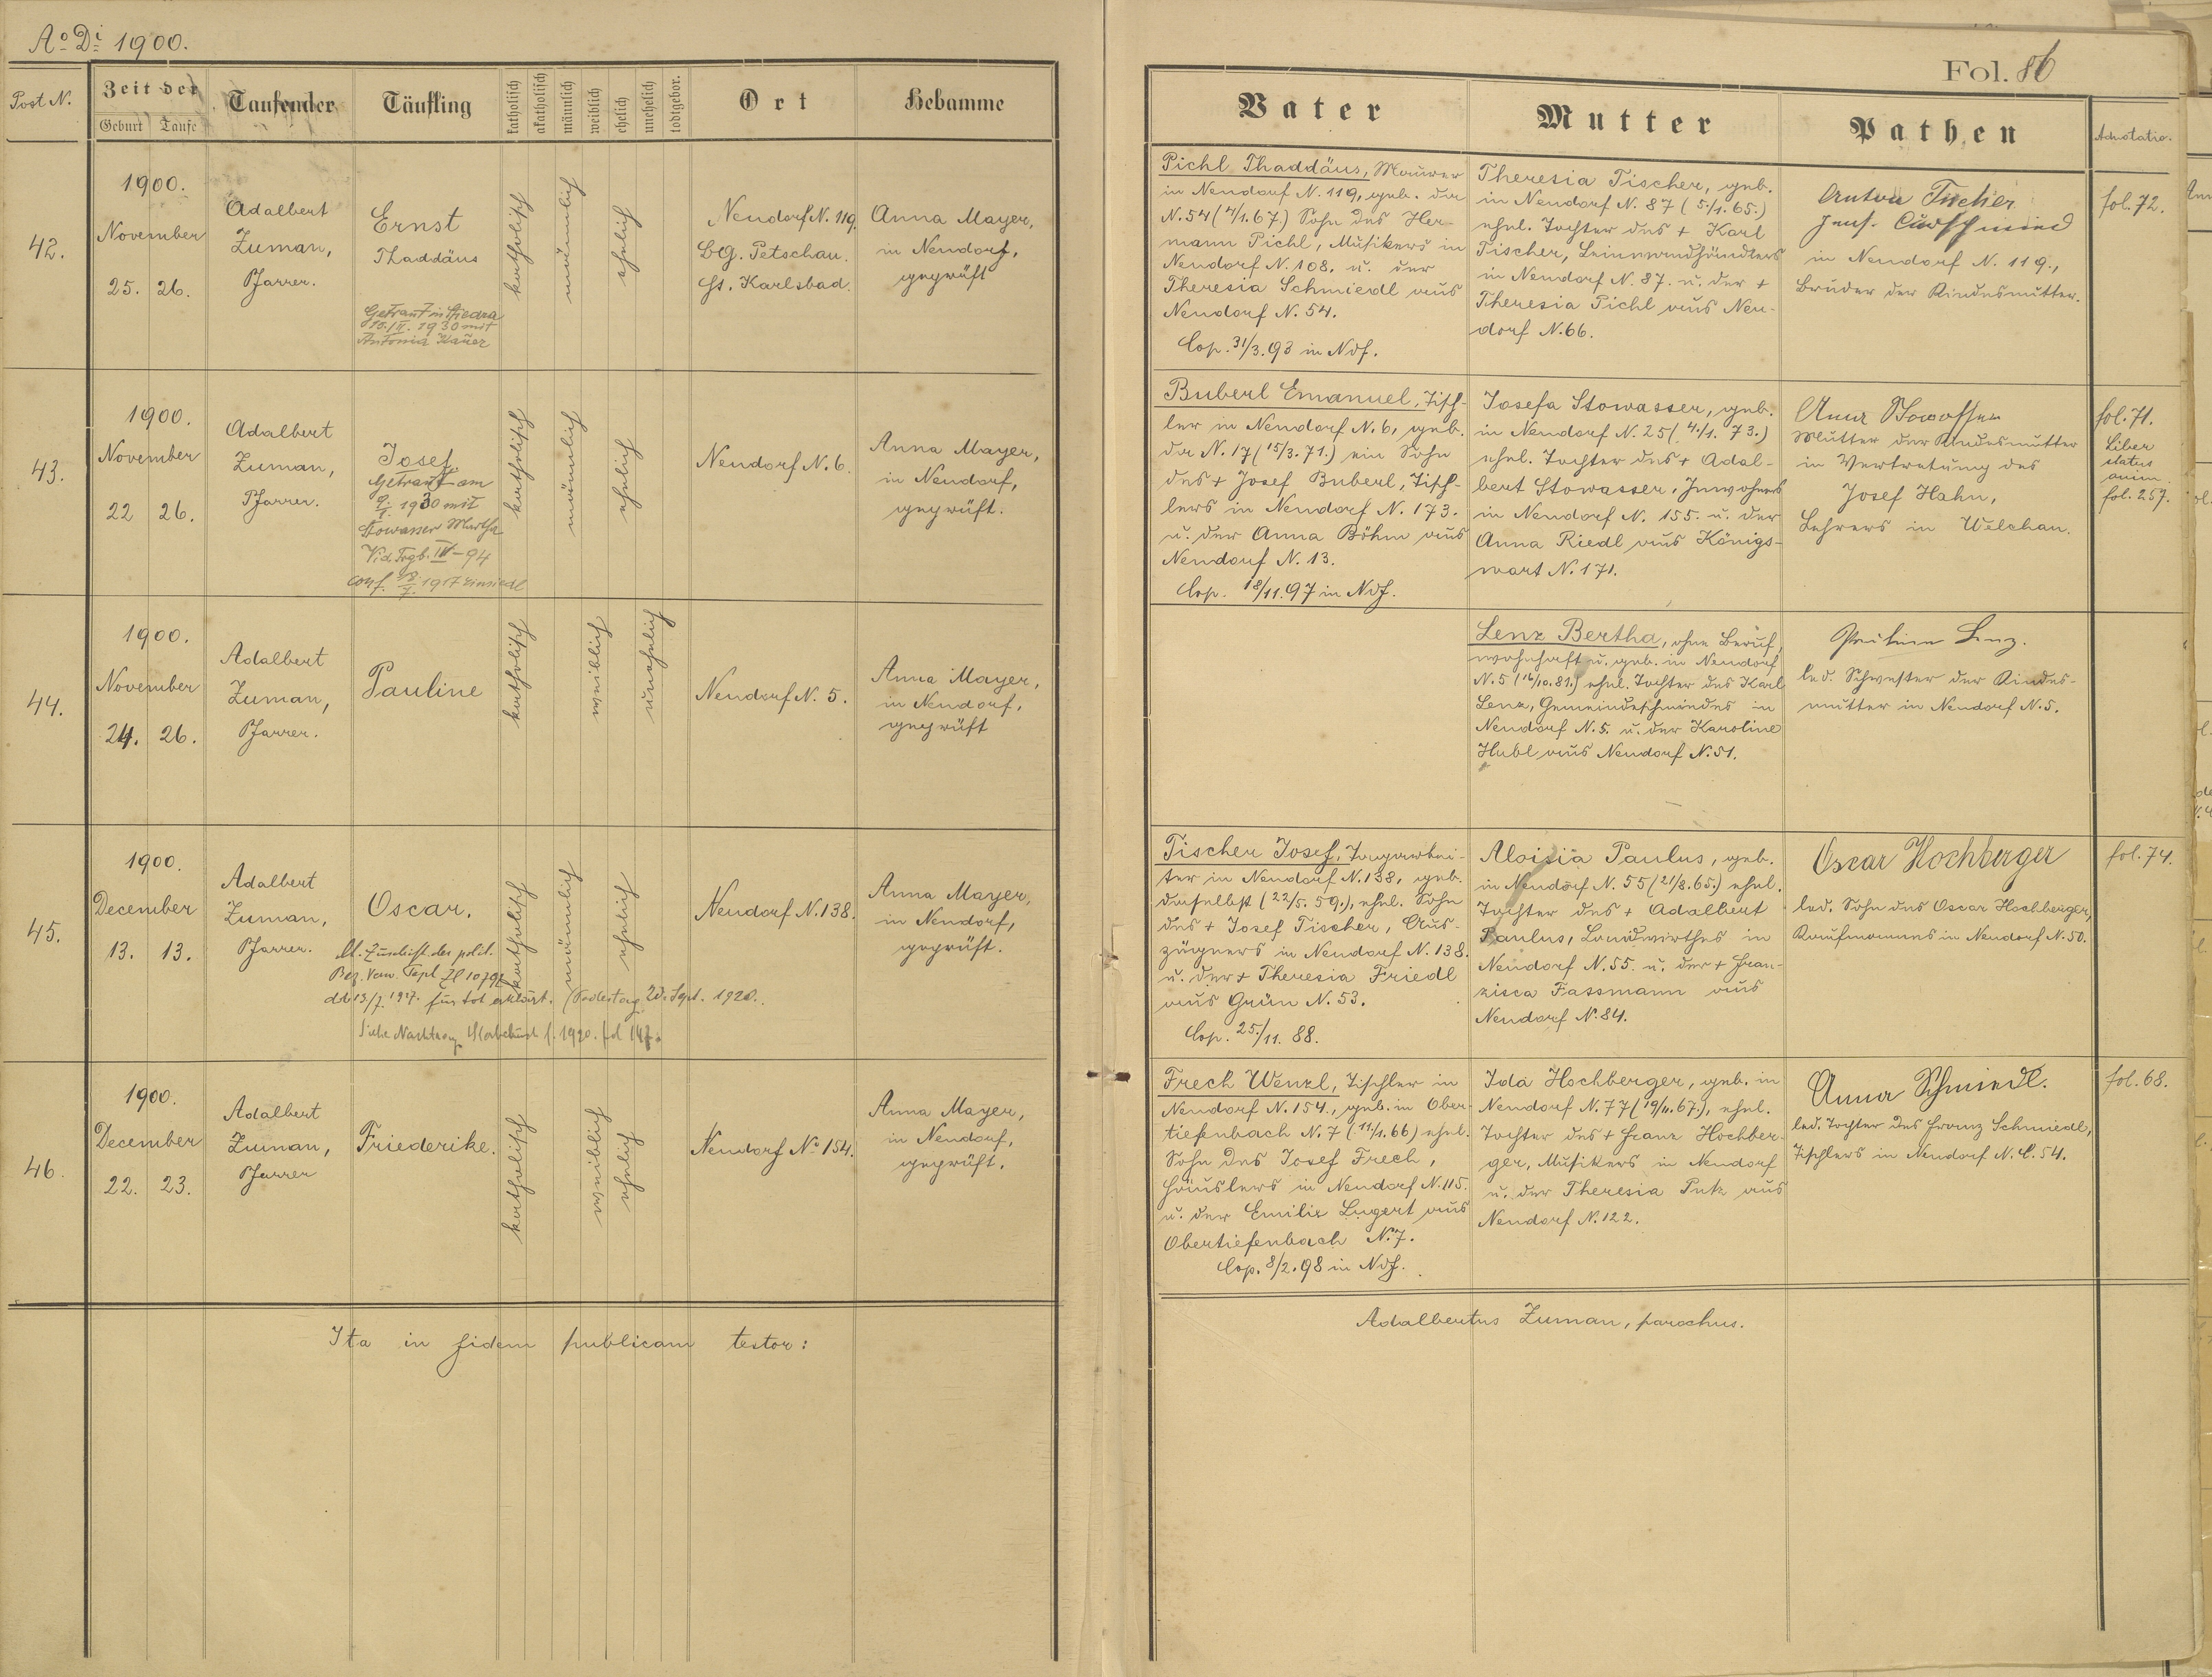 Aº Di 1900.
Fol. 86
Post N.
Zeit der
Geburt
Taufe
Taufender
Täufling
katholisch
akatholisch
männlich
weiblich
ehelich
unehelich
todtgebor.
Ort
Hebamme
Vater
Mutter
Pathen
Adnotatio.
42.
1900.
November
25. 26.
Adalbert
Zuman,
Pfarrer.
Ernst
Thaddäus
Getraut in
1930 mit
Antonia
katholisch
männlich
ehelich
Neudorf N. 119.
BG. Petschau.
Gs. Karlsbad.
Anna Mayer,
in Neudorf,
geprüft
Pichl Thaddäus, Maurer
in Neudorf N. 119, geb. da
N. 54 (4/1. 67.) Sohn des Her-
mann Pichl, Musikers in
Neudorf N. 108. u. der
Theresia Schmiedl aus
Neudorf N. 54.
Cop. 31/3. 93 in Ndf.
Theresia Tischer, geb.
in Neudorf N. 87 (5/1. 65.)
ehel. Tochter des + Karl
Tischer, Leinwandhändlers
in Neudorf N. 87. u. der +
Theresia Pichl aus Neu-
dorf N. 66.
Anton Tischer
in Neudorf N. 119.,
Bruder der Kindesmutter.
fol. 72.
43.
1900.
November
22 26.
Adalbert
Zuman,
Pfarrer.
Josef.
Getraut am
1930 mit
Stowasser Martha
Vid. Trgb. III-94
conf. 1917 Einsiedl
katholisch
männlich
ehelich
Neudorf N. 6.
Anna Mayer,
in Neudorf,
geprüft.
Buberl Emanuel, Tisch-
ler in Neudorf N. 6, geb.
da N. 17 (15/3. 71.) ein Sohn
des + Josef Buberl, Tisch-
lers in Neudorf N. 173.
u. der Anna Böhm aus
Neudorf N. 13.
Cop. 18/11. 97 in Ndf.
Josefa Stowasser, geb.
in Neudorf N. 25 (4./1. 73.)
ehel. Tochter des + Adal-
bert Stowasser, Inwohners
in Neudorf N. 155. u. der
Anna Riedl aus Königs-
wart N. 171.
Anna Stowasser
Mutter der Kindesmutter
in Vertretung des
Josef Hahn,
Lehrers in Welchau.
fol. 71.
Liber
status
anim.
fol. 257.
44.
1900.
November
24. 26.
Adalbert
Zuman,
Pfarrer.
Pauline
katholisch
weiblich
unehelich
Neudorf N. 5.
Anna Mayer,
in Neudorf,
geprüft
Lenz Bertha, ohne Beruf,
wohnhaft u. geb. in Neudorf
N. 5 (16/10. 81.) ehel. Tochter des Karl
Lenz, Gemeindeschmiedes in
Neudorf N. 5. u. der Karoline
Hubl aus Neudorf N. 51.
Pauline Lenz.
led. Schwester der Kindes-
mutter in Neudorf N. 5.
45.
1900.
December
13. 13.
Adalbert
Zuman,
Pfarrer.
Oscar.
lt. Zuschrift der polit.
Bez. Verw. Tepl Zl 10792
dd 13/7. 1927. für tot erklärt. (Todestag 20. Sept. 1920.
Siehe Nachtrag Sterbebuch f. 1920. fol 147.
katholisch
männlich
ehelich
Neudorf N. 138.
Anna Mayer,
in Neudorf,
geprüft.
Tischer Josef, Tagarbei-
ter in Neudorf N. 138, geb.
daselbst (22/5. 59.), ehel. Sohn
des + Josef Tischer, Aus-
züglers in Neudorf N. 138.
u. der + Theresia Friedl
aus Grün N. 53.
Cop. 25./11. 88.
Aloisia Paulus, geb.
in Neudorf N. 55 (21/8. 65.) ehel.
Tochter des + Adalbert
Paulus, Landwirthes in
Neudorf N. 55. u. der + Fran-
zisca Fassmann aus
Neudorf N. 84.
Oscar Hochberger
led. Sohn des Oscar Hochberger,
Kaufmannes in Neudorf N. 50.
fol. 74.
46.
1900.
December
22. 23.
Adalbert
Zuman,
Pfarrer
Friederike.
katholisch
weiblich
ehelich
Neudorf No 154.
Anna Mayer,
in Neudorf,
geprüft.
Frech Wenzl, Tischler in
Neudorf N. 154., geb. in Ober-
tiefenbach N. 7 (11/1. 66) ehel.
Sohn des Josef Frech,
Häuslers in Neudorf N. 115.
u. der Emilie Lugert aus
Obertiefenbach N. 7.
Cop. 8/2. 98 in Ndf.
Ida Hochberger, geb. in
Neudorf N. 77 (19/11. 67.), ehel.
Tochter des + Franz Hochber-
ger, Musikers in Neudorf
u. der Theresia Putz aus
Neudorf N. 122.
Anna Schmiedl.
led. Tochter des Franz Schmiedl,
Tischlers in Neudorf N. C. 54.
fol. 68.
Ita in fidem publicam testor:
Adalbertus Zuman, parochus.